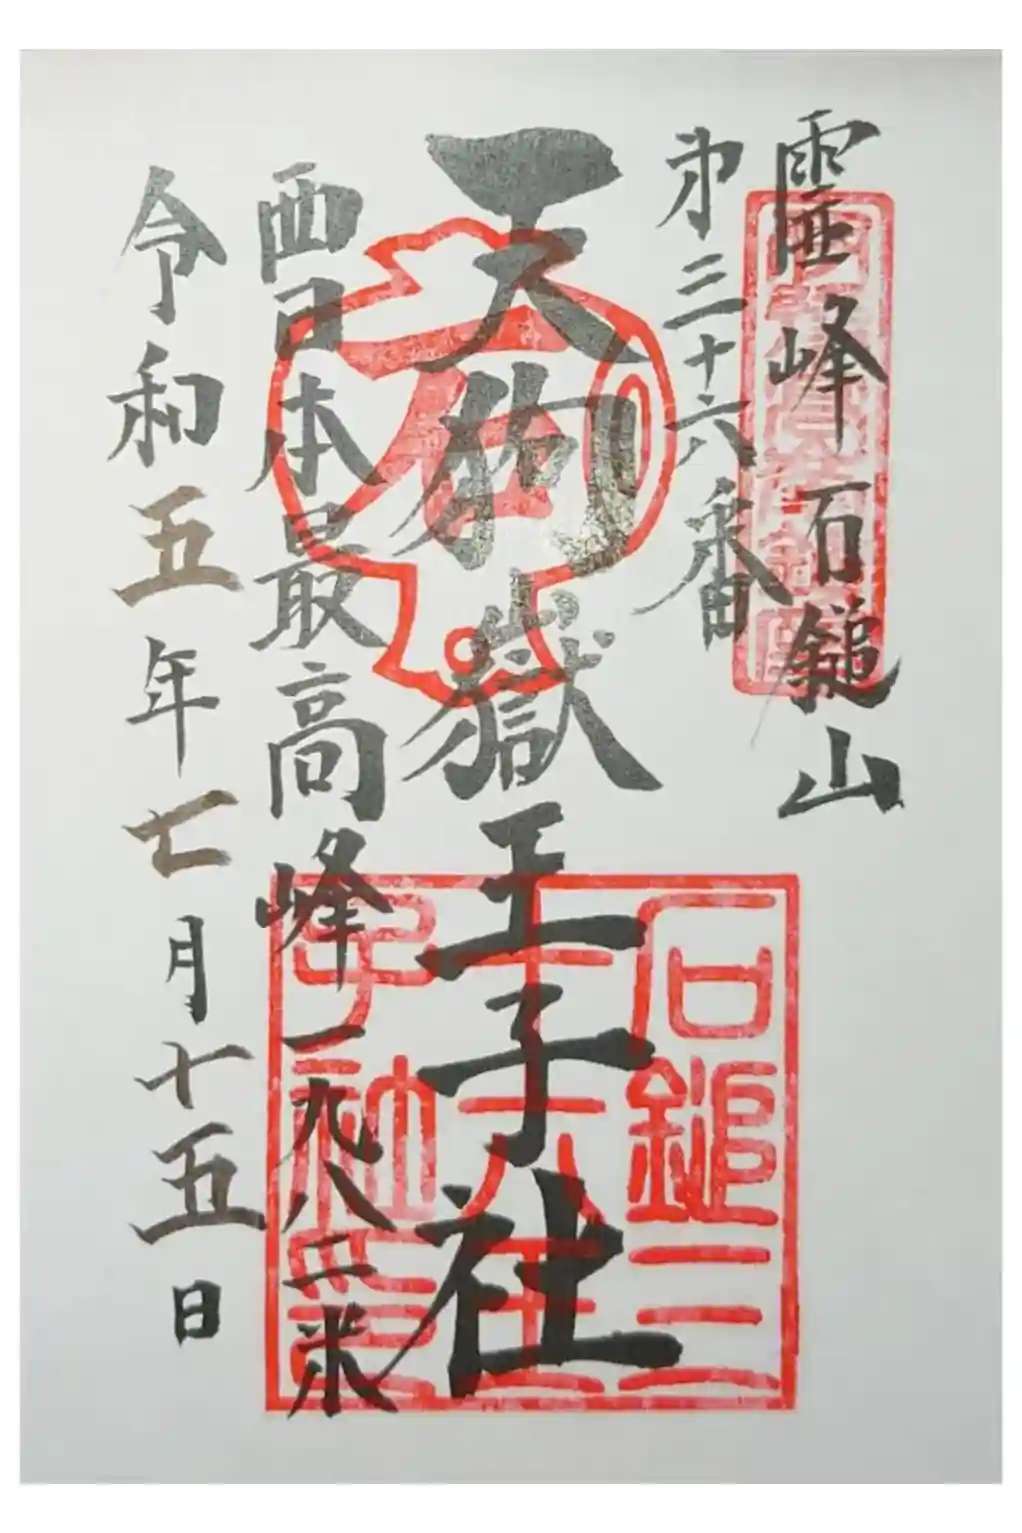 霊峰石鎚山
第三十六番
天狗嶽王子社
西日本最高峰一九八二米
令和五年七月十五日
石鎚三十六王子社印